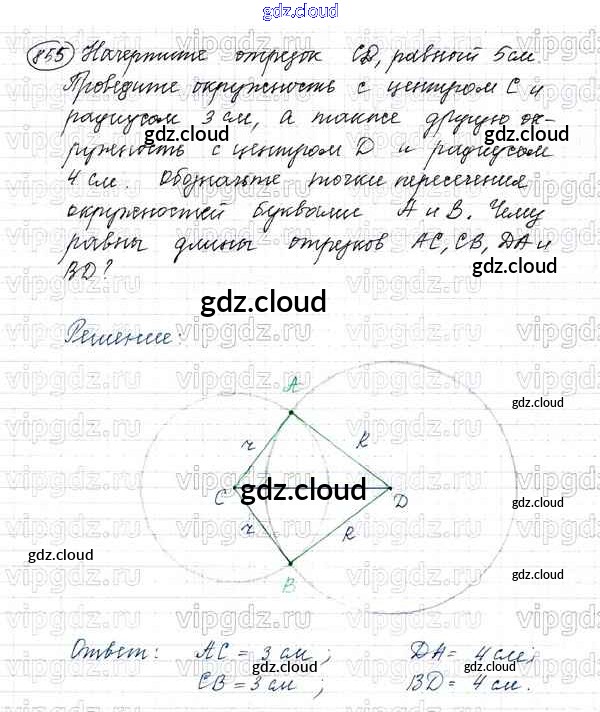 gdz.cloud
gdz.cloud
855 Начертите отрезок CD, равный 5 см.
Проведите окружность с центром C и
радиусом 3 см, а также другую ок-
gdz.cloud gdz.cloud
ружность с центром D и радиусом
4 см. Обозначьте точки пересечения
окружностей буквами A и B. Чему
равны длины отрезков AC, CB, DA и
gdz.cloud
BD?
gdz.cloud
vipgdz.ru vipgdz.ru vipgdz.ru vipgdz.ru
Решение:
A
gdz.cloud
r R
gdz.cloud
C gdz.cloud D
gdz.cloud
r R
gdz.cloud
B
gdz.cloud
Ответ: AC = 3 см; DA = 4 см;
gdz.cloud
CB = 3 см; BD = 4 см.